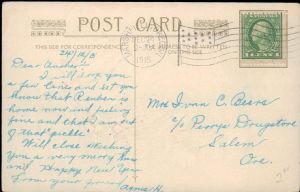 POST CARD
THIS SIDE FOR CORRESPONDENCE
THE ADDRESS TO BE WRITTEN
ON THIS SIDE
1915
24/12/15
Dear
I will drop you
a few lines and let you
know that Reuben is
home now and feeling
fine and that I am out
of that "pickle"
Will close Wishing
you a very merry Xmas
and Happy New Year
From your friend
Annie H.
Mrs Ivan C. Beers
c/o Perrys Drugstore
Salem
Ore.